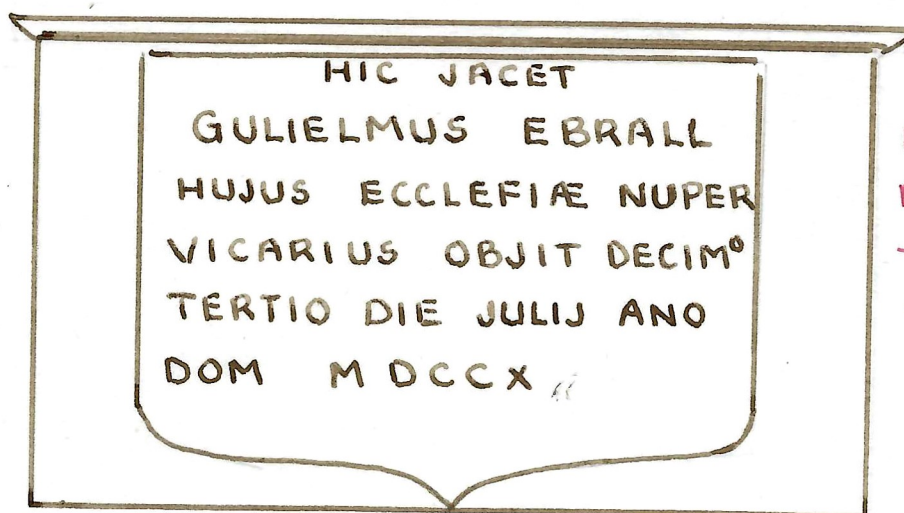 HIC JACET
GULIELMUS EBRALL
HUJUS ECCLEFIÆ NUPER
VICARIUS OBJIT DECIMº
TERTIO DIE JULIJ ANO
DOM MDCCX